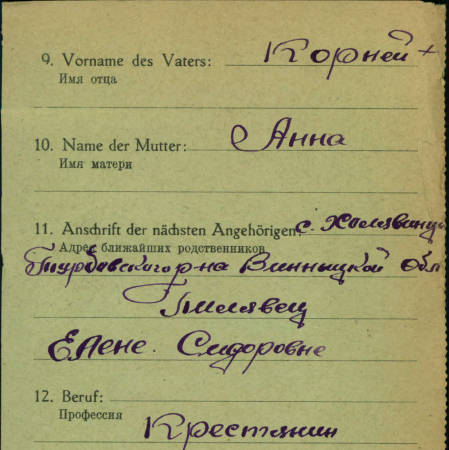 9. Vorname des Vaters: Корней +
Имя отца
10. Name der Mutter: Анна
Имя матери
11. Anschrift der nächsten Angehörigen: с. Холявинцы
Адрес ближайших родственников
Турбовского р-на Винницкой обл
Елене Сидоровне
12. Beruf:
Профессия
Крестянин